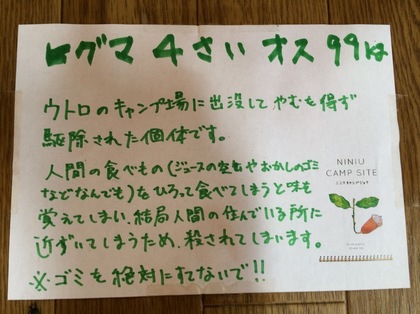 ヒグマ 4さい オス 99は
ウトロのキャンプ場に出没して やむを得ず
駆除された個体です。
人間の食べもの(ジュースの空缶やおかしのゴミ
などなんでも)をひろって食べてしまうと味も
覚えてしまい、結局人間の住んでいる所に
近ずいてしまうため、殺されてしまいます。
※ゴミを絶対にすてないで!!
NINIU
CAMP SITE